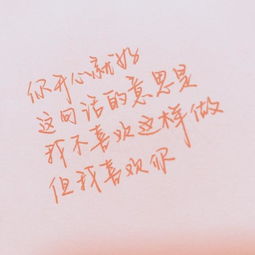 你开心就好
这句话的意思是
我不喜欢这样做
但我喜欢你